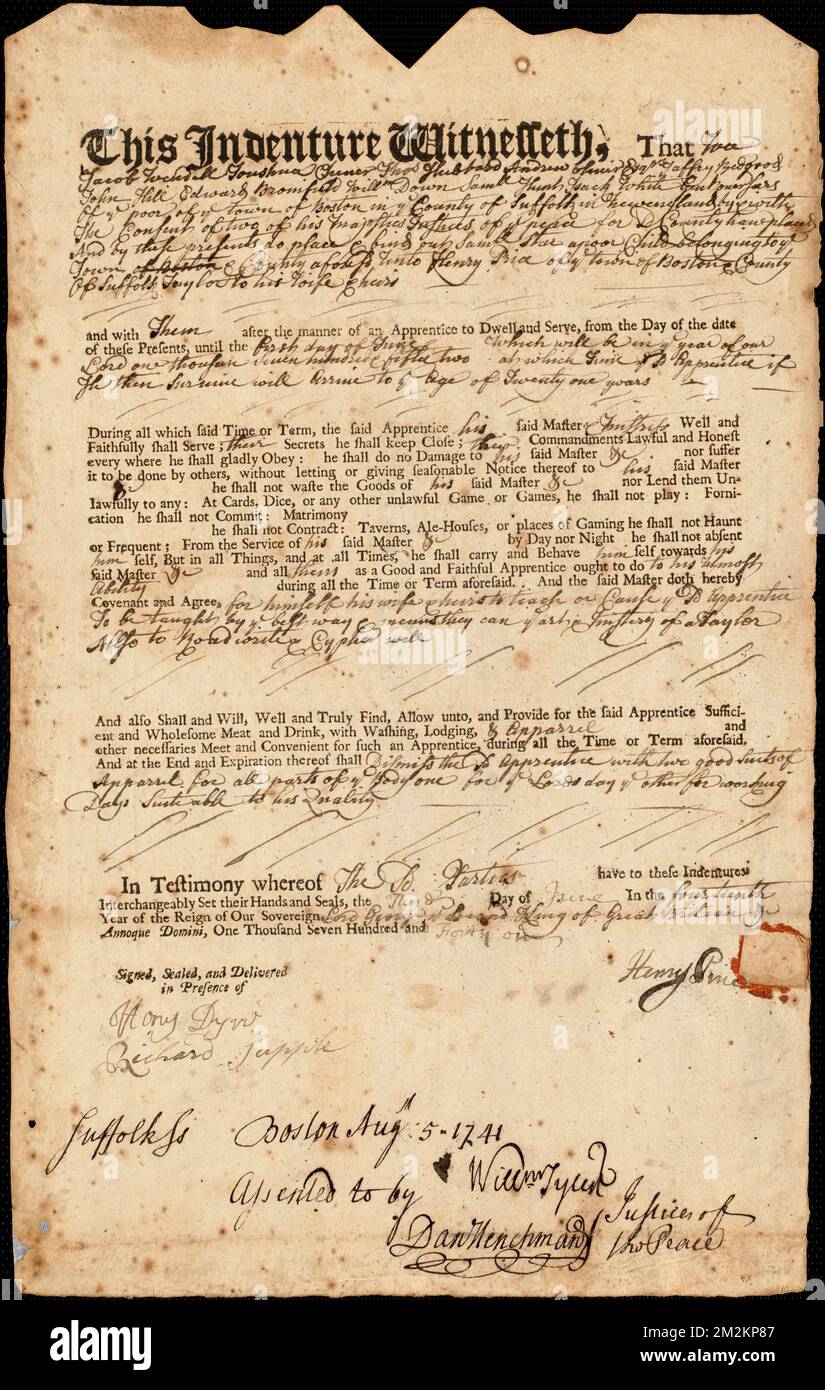 This Indenture Witnesseth, That Wee
Jacob Wendell Thos Hubbard Andrew Oliver Esqrs Jaffry Bedgood
John Hill Edward Bromfield Willm Down Saml Isack White Gent overseers
Of ye poor of ye town of Boston in ye County of Suffolk in Newengland by & with
The Consent of two of his Majesties Justices of ye peace for sd County have placed
And by these presents do place & bind out Saml a poor Child belonging to ye
Town of Boston & County aforesd Unto Henry Price of ye town of Boston & County
Of Suffolk Taylor to his Wife & heirs
and with Them after the manner of an Apprentice to Dwell and Serve, from the Day of the date
of these Presents, until the first day of June Which will be in ye year of our
Lord one thousand Seven hundred & fifty two at which time ye sd Apprentice if
He then Survive will Arrive to ye Age of Twenty one years
During all which said Time or Term, the said Apprentice his said Master & Mistriss Well and
Faithfully shall Serve; their Secrets he shall keep Close; their Commandments Lawful and Honest
every where he shall gladly Obey: he shall do no Damage to his said Master &c nor suffer
it to be done by others, without letting or giving seasonable Notice thereof to his said Master
&c he shall not waste the Goods of his said Master &c nor Lend them Un-
lawfully to any: At Cards, Dice, or any other unlawful Game or Games, he shall not play: Forni-
cation he shall not Commit: Matrimony
he shall not Contract: Taverns, Ale-Houses, or places of Gaming he shall not Haunt
or Frequent; From the Service of his said Master &c by Day nor Night he shall not absent
him self, But in all Things, and at all Times, he shall carry and Behave him self towards his
said Master &c and all theirs as a Good and Faithful Apprentice ought to do to his utmost
Ability during all the Time or Term aforesaid. And the said Master doth hereby
Covenant and Agree, for himself his wife & heirs to teach or Cause ye sd Apprentice
To be taught by ye best way & means they can ye art & mistery of a Taylor
Allso to Read write & Cypher well
And also Shall and Will, Well and Truly Find, Allow unto, and Provide for the said Apprentice Suffici-
ent and Wholesome Meat and Drink, with Washing, Lodging, & Apparrel and
other necessaries Meet and Convenient for such an Apprentice, during all the Time or Term aforesaid.
And at the End and Expiration thereof shall Dismiss the sd Apprentice with two good Suits of
Apparrel for all parts of ye Body one for ye Lords day ye other for working
Days Suitable to his Quality
In Testimony whereof The sd Parties have to these Indentures
Interchangeably Set their Hands and Seals, the Third Day of June In the fourteenth
Year of the Reign of Our Sovereign Lord George ye Second King of Great Britain &c
Annoque Domini, One Thousand Seven Hundred and Forty one
Henry Price
Signed, Sealed, and Delivered
in Presence of
Richard Supple
Suffolk ss Boston Augst 5. 1741
Assented to by Willm Tyler
Danl Henchman Justices of
the Peace
alamy
Image ID: 2M2KP87
www.alamy.com